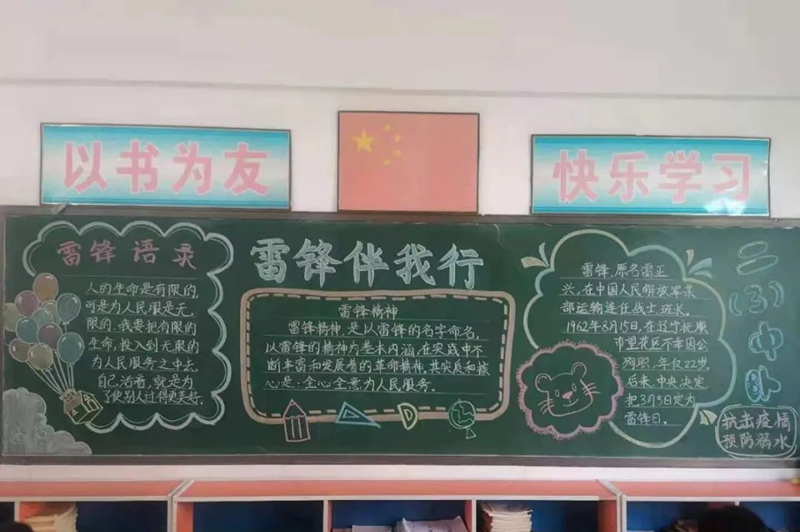 以书为友
快乐学习
雷锋语录
人的生命是有限的,
可是为人民服是无
限的,我要把有限的
生命,投入到无限的
为人民服务之中去,
自己活着,就是为
了使别人过得更美好.
雷锋伴我行
雷锋精神
雷锋精神,是以雷锋的名字命名,
以雷锋的精神为基本内涵,在实践中不
断丰富和发展着的革命精神,其实质和核
心是:全心全意为人民服务.
雷锋,原名雷正
兴,在中国人民解放军某
部运输连任战士班长.
1962年8月15日,在辽宁抚顺
市望花区不幸因公
殉职,年仅22岁,
后来,中央决定
把3月5日定为
雷锋日.
二
(3)
中
队
抗击疫情
预防溺水